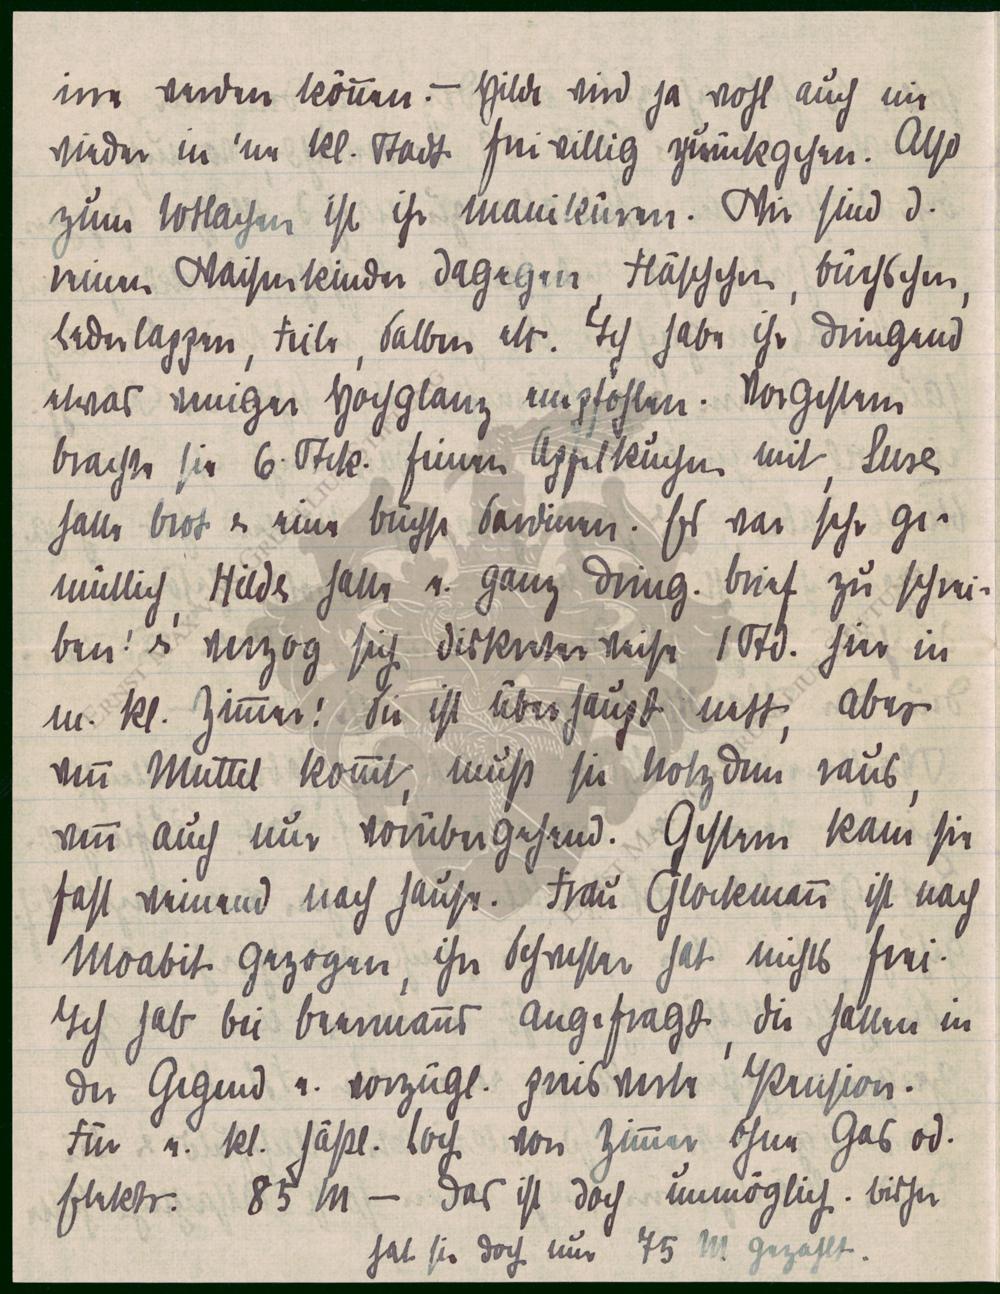 irre werden können. – Hilde wird ja wohl auch nie
wieder in 'ne kl. Stadt freiwillig zurückgehen. Also
zum totlachen ist ihr maniküren. Wir sind d.
reinen Waisenkinder dagegen, Fläschchen, büchschen,
Lederlappen, Feile, Salben etc. Ich habe ihr dringend
etwas weniger Hochglanz empfohlen. Vorgestern
brachte sie 6 Stck. feinen Apfelkuchen mit, Suse
hatte brot & eine büchse Sardinen. Es war sehr ge-
mütlich, Hilde hatte e. ganz dring. brief zu schrei-
ben! & verzog sich diskreterweise 1 Std. hier in
m. kl. Zimmer! Sie ist überhaupt nett, aber
wenn Muttel kommt, muß sie trotzdem raus,
wenn auch nur vorübergehend. Gestern kam sie
fast weinend nach hause. Frau Glockmann ist nach
Moabit gezogen, ihre Schwester hat nichts frei.
Ich hab bei beermanns angefragt, die hatten in
der Gegend e. vorzügl. preiswerte Pension.
Für e. kl. häßl. Loch von Zimmer ohne Gas od.
Elektr. 85 M – das ist doch unmöglich. bisher
hat sie doch nur 75 M. gezahlt.